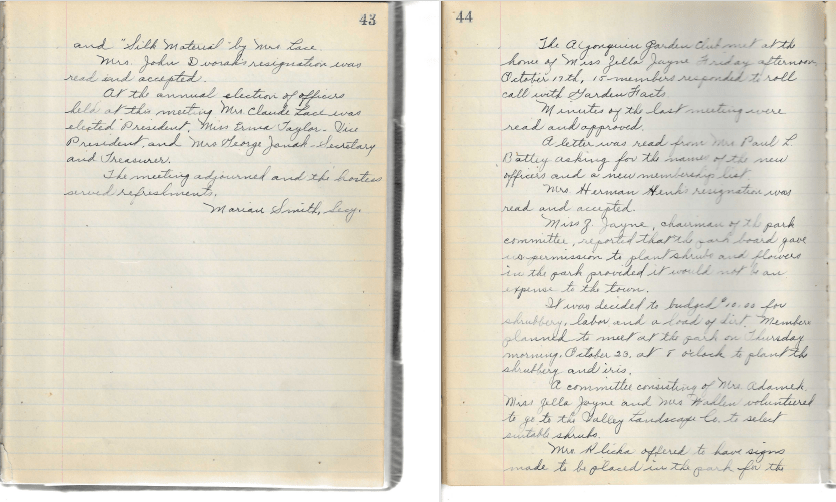 43
and "Silk Material" by Mrs Lace.
Mrs. John Dvoraks resignation was
read and accepted.
At the annual election of officers
held at this meeting Mrs. Claude Lace was
elected President, Miss Erma Taylor - Vice
President, and Mrs George Janak Secretary
and Treasurer.
The meeting adjourned and the hostess
served refreshments.
Marian Smith, Secy.
44
The Algonquin Garden Club met at the
home of Miss Zella Jayne Friday afternoon
October 17th, 15 members responded to roll
call with Garden Facts.
Minutes of the last meeting were
read and approved.
A letter was read from Mrs Paul L
Batley asking for the name of the new
officers and a new membership list.
Mrs Herman Henks resignation was
read and accepted.
Miss Z. Jayne, chairman of the park
committee, reported that the park board gave
us permission to plant shrubs and flowers
in the park provided it would not be an
expense to the town.
It was decided to budget $10.00 for
shrubbery, labor and a load of dirt. Members
planned to meet at the park on Thursday
morning, October 23, at 8 oclock to plant the
shrubbery and iris.
A committee consisting of Mrs Adamek,
Miss Zella Jayne and Mrs volunteered
to go to the Valley Landscape Co. to select
suitable shrubs.
Mrs offered to have signs
made to be placed in the park for the